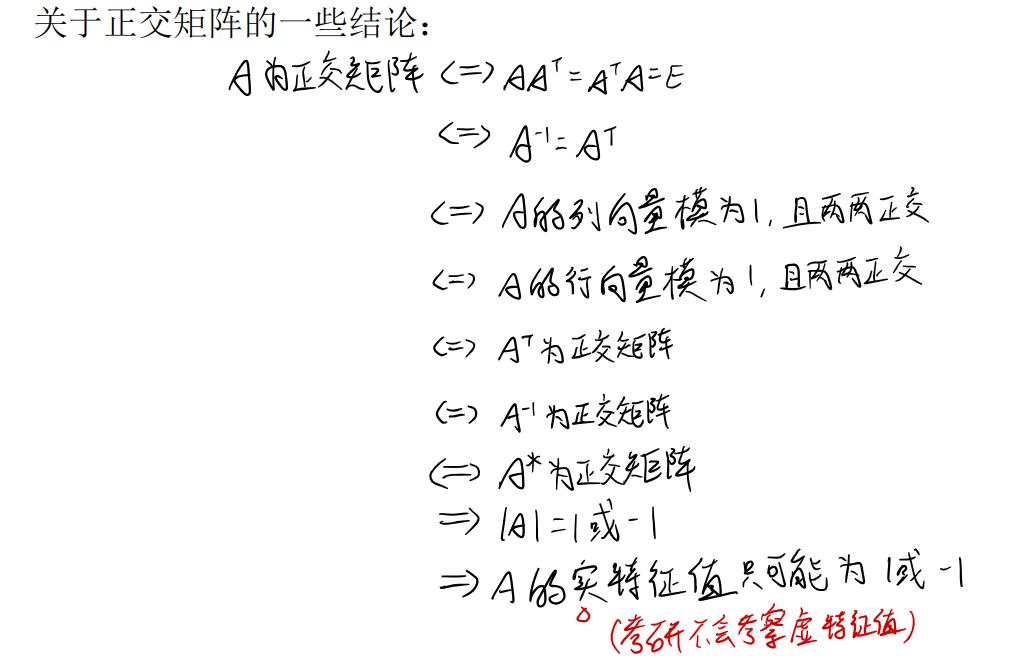 关于正交矩阵的一些结论：
A为正交矩阵 <=> AAᵀ=AᵀA=E
<=> A⁻¹=Aᵀ
<=> A的列向量模为1，且两两正交
<=> A的行向量模为1，且两两正交
<=> Aᵀ为正交矩阵
<=> A⁻¹为正交矩阵
<=> A*为正交矩阵
=> |A|=1或-1
=> A的实特征值只可能为1或-1
(考研不会考察虚特征值)